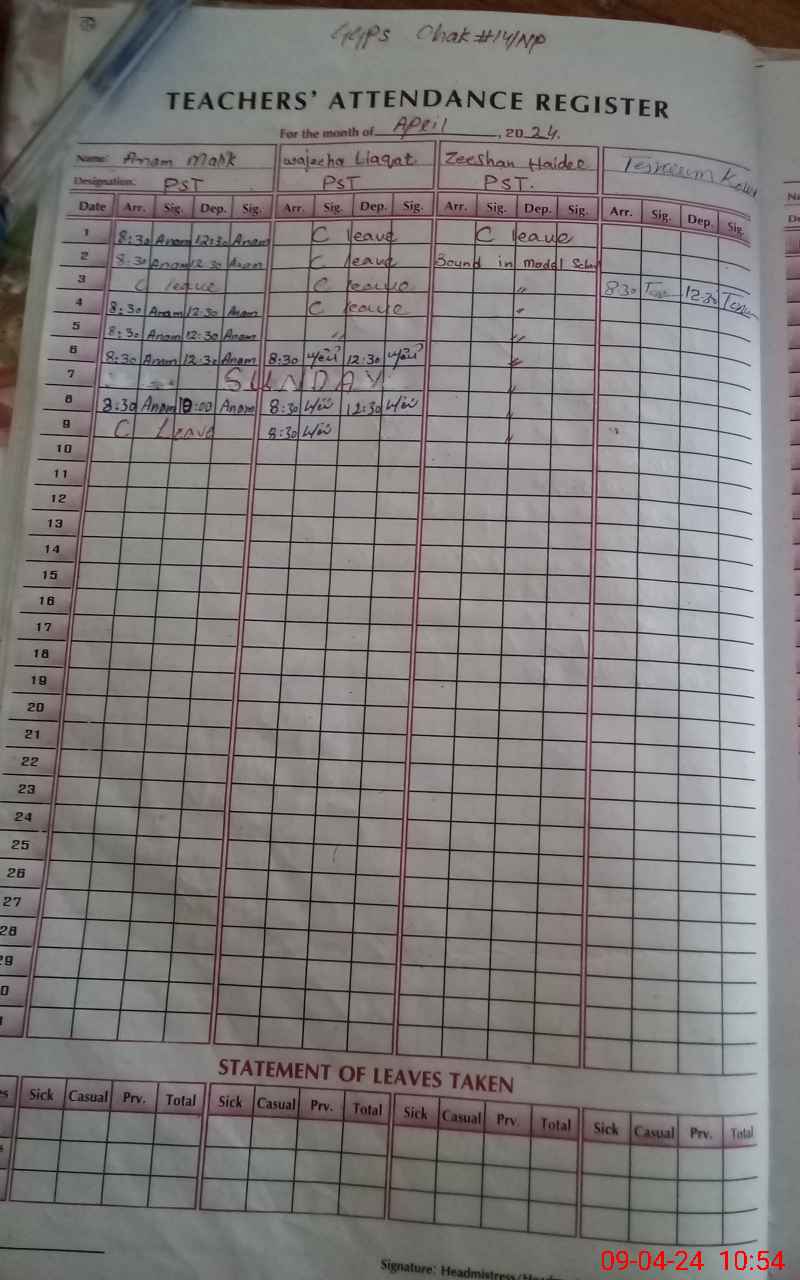 GGPS Chak #14/NP
TEACHERS' ATTENDANCE REGISTER
For the month of April, 2024.
Name: Anam Malik Wajeeha Liaqat Zeeshan Haider
Designation: PST PST PST.
Date Arr. Sig. Dep. Sig. Arr. Sig. Dep. Sig. Arr. Sig. Dep. Sig. Arr. Sig. Dep. Sig.
1 8:30 Anam 12:30 Anam C leave C leave
2 8:30 Anam 12:30 Anam C leave Bound in Model School
3 C leave C leave " 8:30 12:30
4 8:30 Anam 12:30 Anam C leave "
5 8:30 Anam 12:30 Anam " "
6 8:30 Anam 12:30 Anam 8:30 12:30 "
7 SUNDAY "
8 8:30 Anam Anam 8:30 12:30 "
9 C Leave 8:30 "
10
11
12
13
14
15
16
17
18
19
20
21
22
23
24
25
26
27
28
29
STATEMENT OF LEAVES TAKEN
Sick Casual Prv. Total Sick Casual Prv. Total Sick Casual Prv. Total Sick Casual Prv. Total
Signature: Headmistress/
09-04-24 10:54